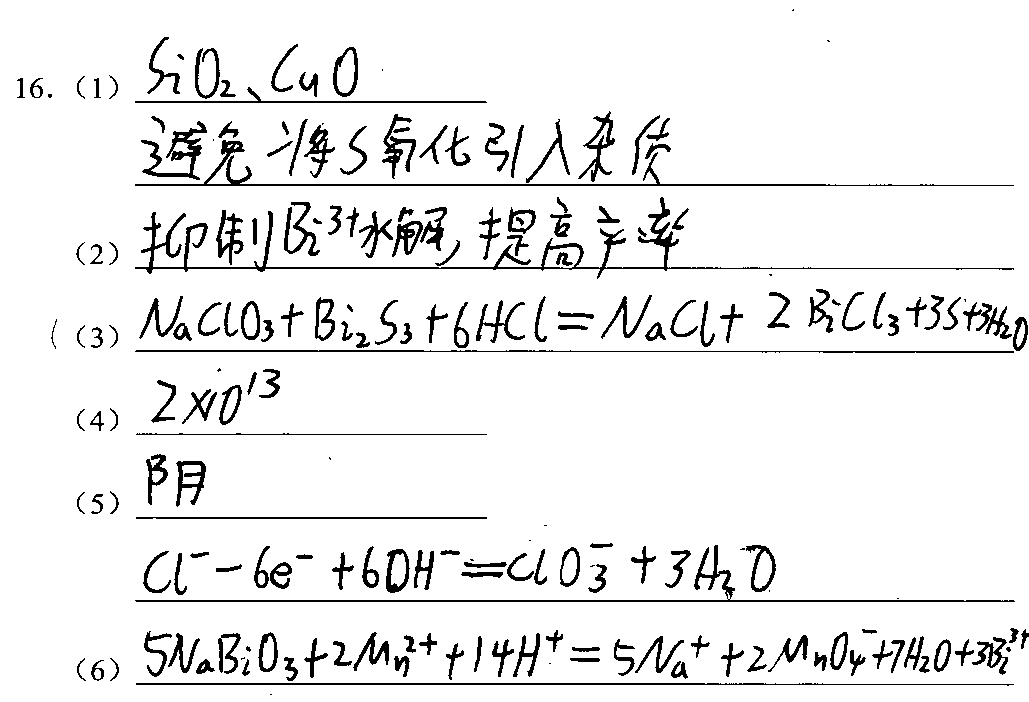 16. (1) SiO₂、CuO
避免将S氧化引入杂质
(2) 抑制Bi³⁺水解，提高产率
(3) NaClO₃+Bi₂S₃+6HCl=NaCl+2BiCl₃+3S+3H₂O
(4) 2×10¹³
(5) 阴
Cl⁻-6e⁻+6OH⁻=ClO₃⁻+3H₂O
(6) 5NaBiO₃+2Mn²⁺+14H⁺=5Na⁺+2MnO₄⁻+7H₂O+3Bi³⁺